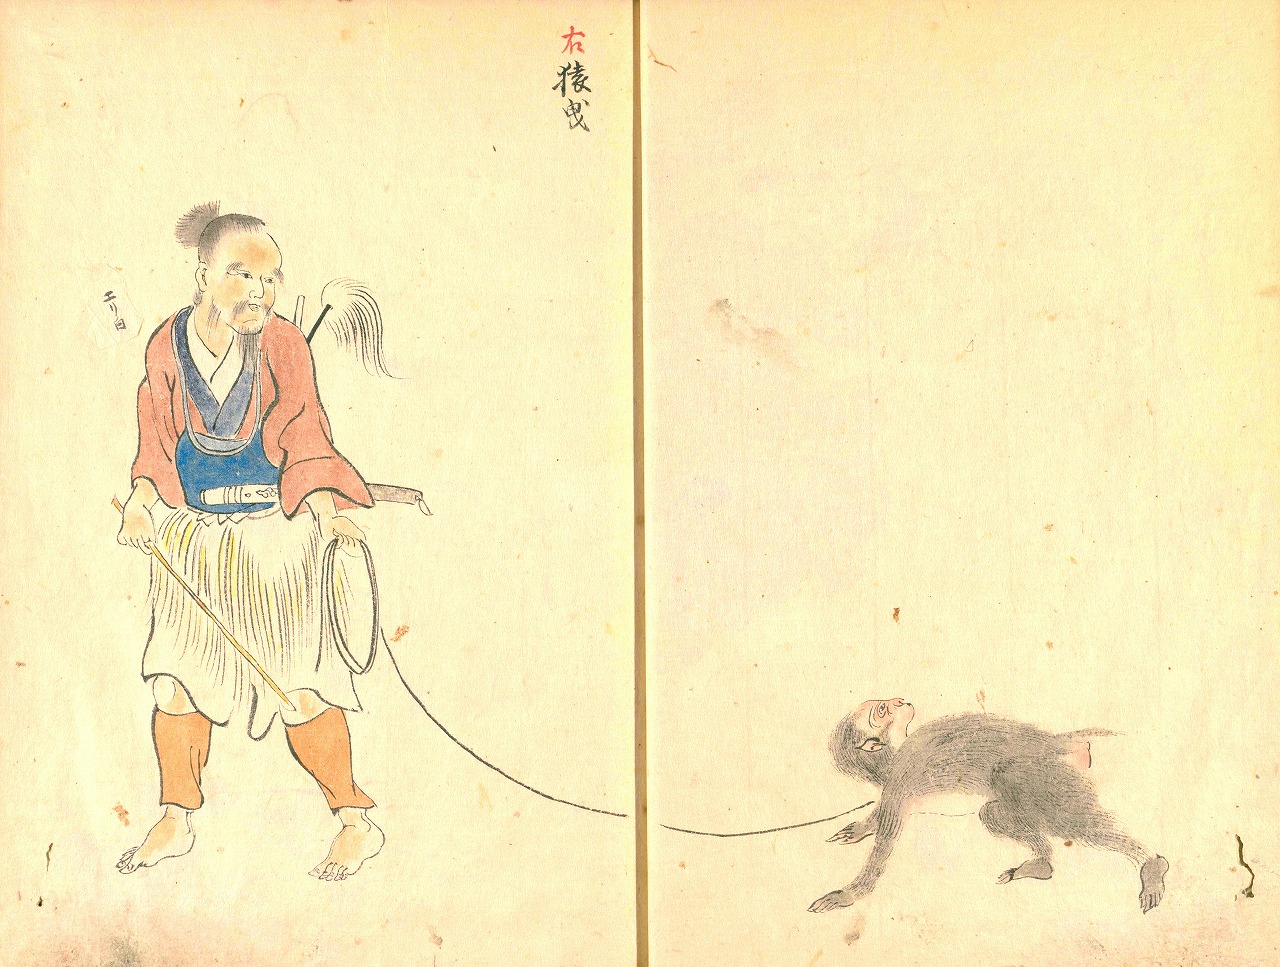 右
猿曳
エリ日